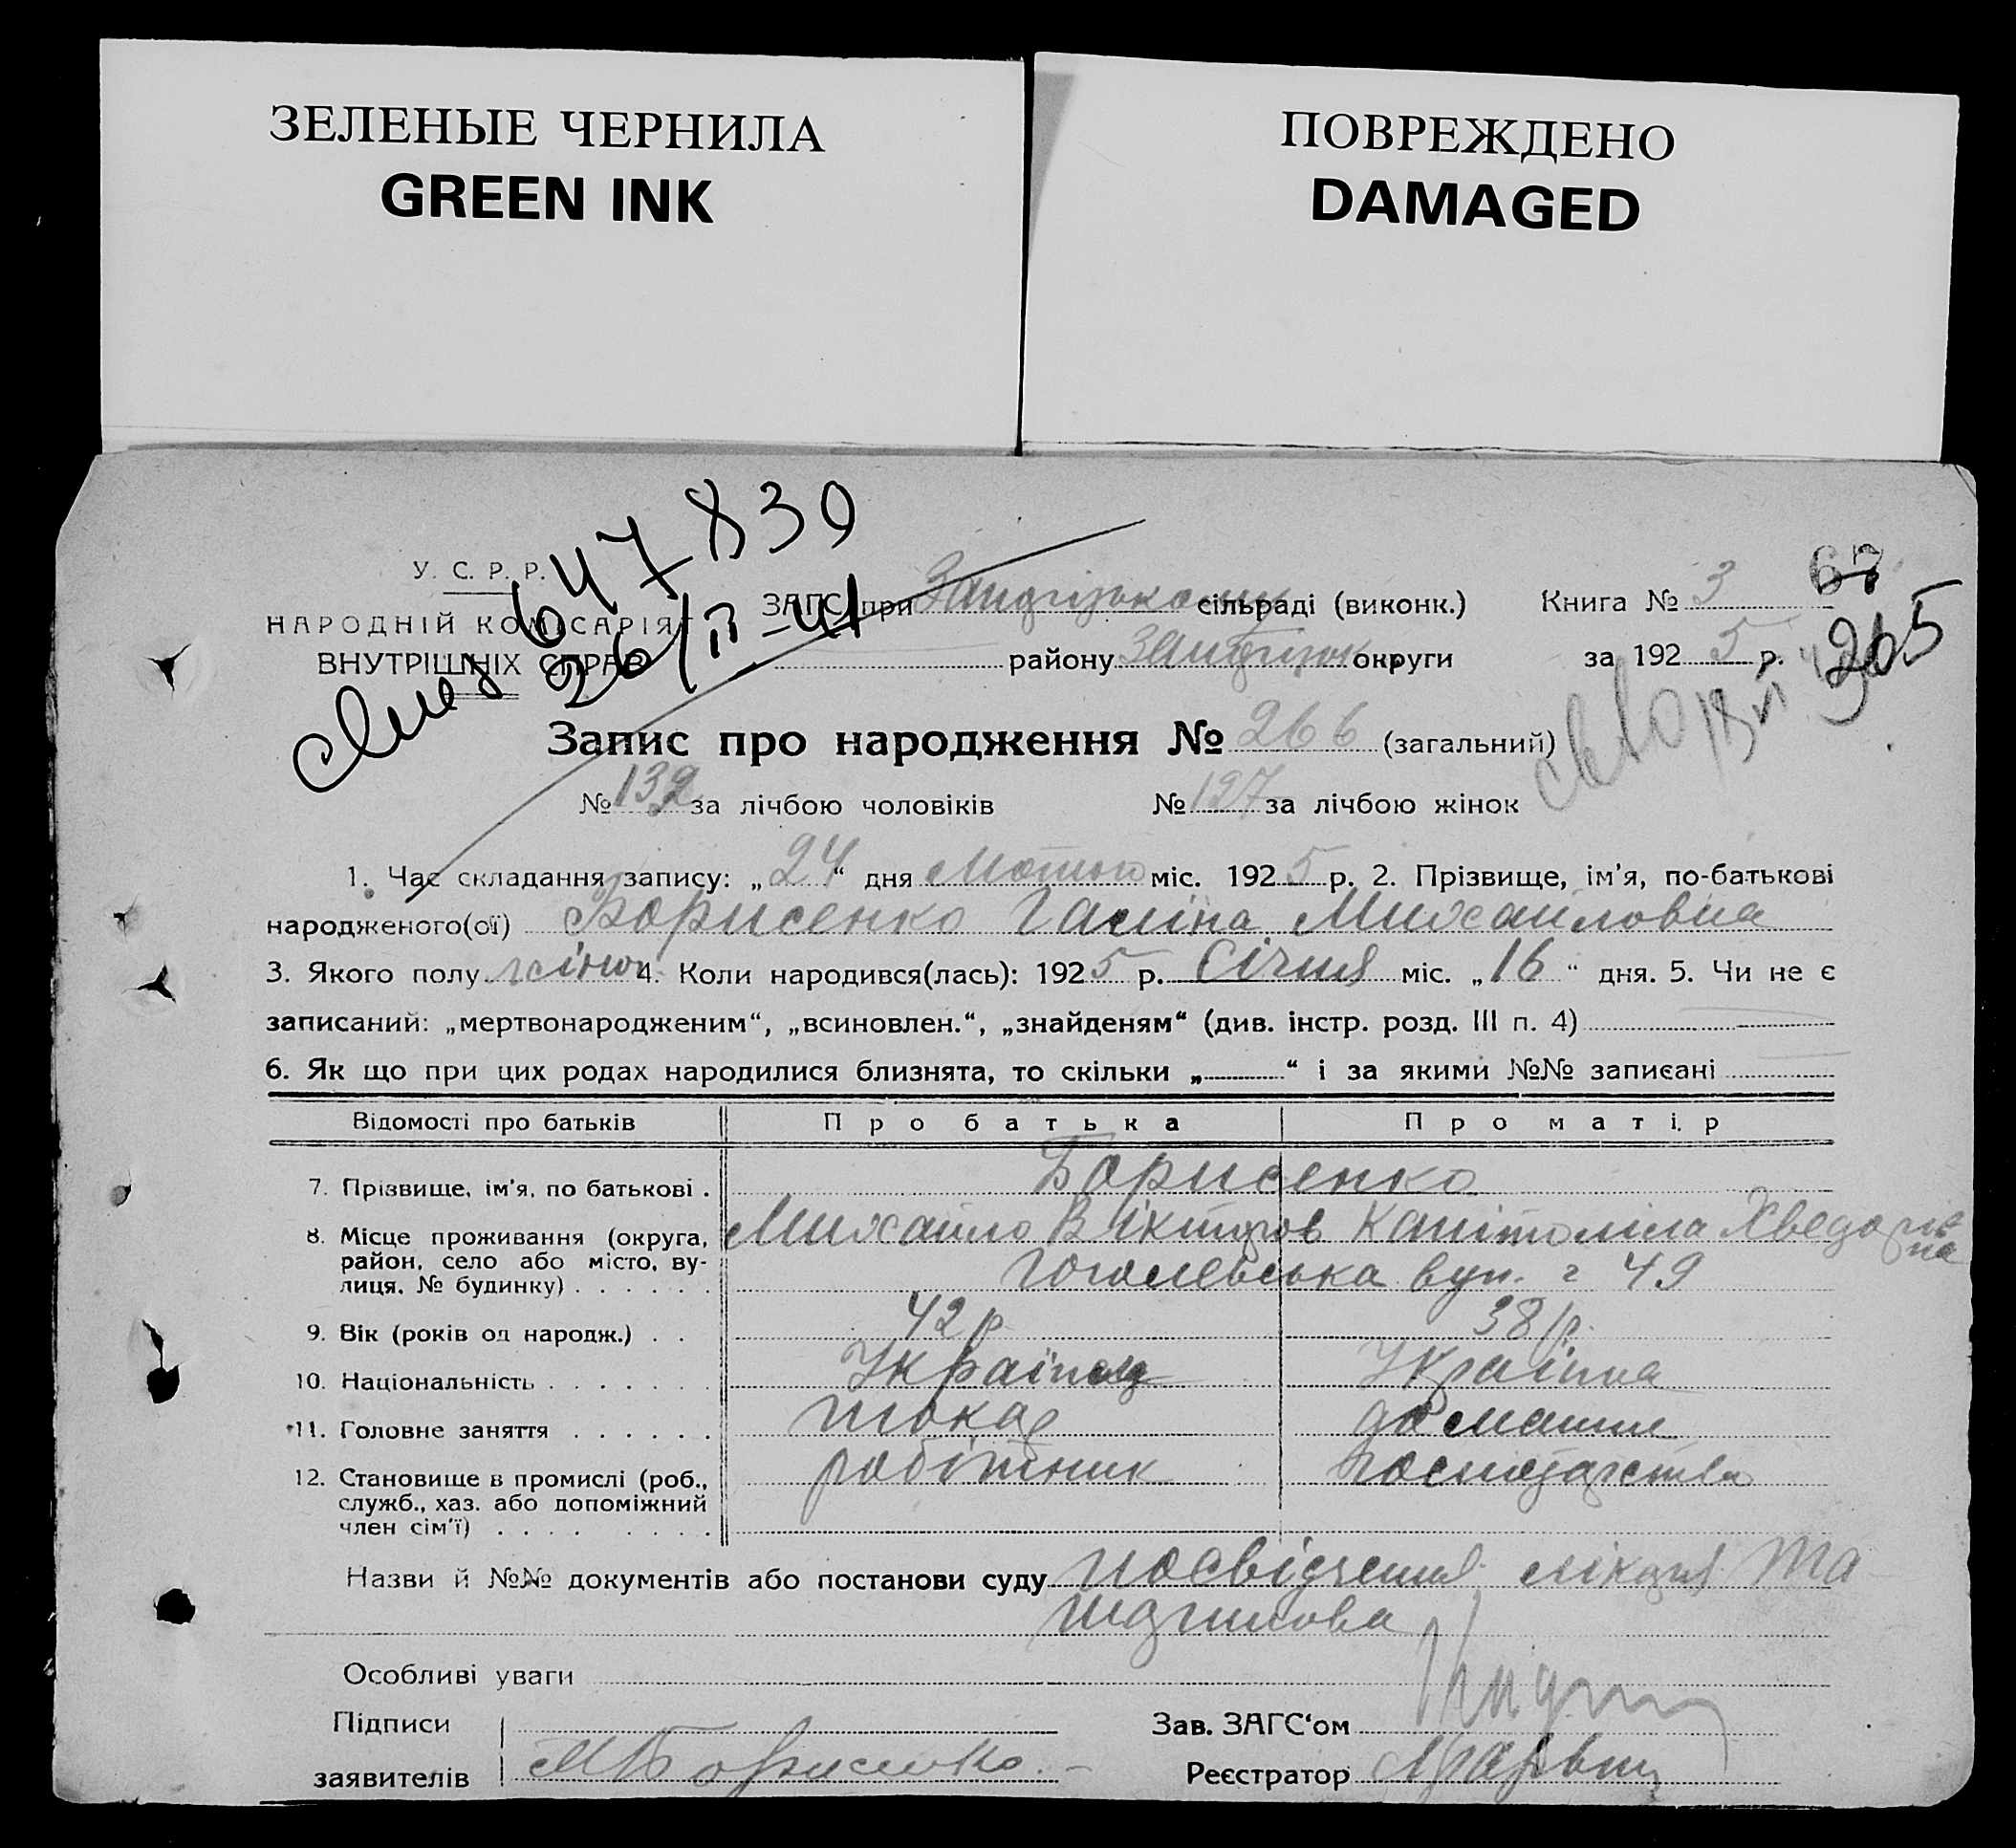 ЗЕЛЕНЫЕ ЧЕРНИЛА
GREEN INK
ПОВРЕЖДЕНО
DAMAGED
647839
26/II-41
У. С. Р. Р.
НАРОДНІЙ КОМІСАРІЯТ
ВНУТРІШНІХ СПРАВ
ЗАГС при сільраді (виконк.) Книга № 3 67
району округи за 192 5 р. 265
Запис про народження № 266 (загальний)
№ 139 за лічбою чоловіків № 127 за лічбою жінок
1. Час складання запису: „ 24 “ дня Лютого міс. 192 5 р. 2. Прізвище, ім'я, по-батькові
народженого(ої) Борисенко Галіна Михайловна
3. Якого полу жіноч. 4. Коли народився(лась): 192 5 р. Січня міс. „ 16 “ дня. 5. Чи не є
записаний: „мертвонародженим“, „всиновлен.“, „знайденям“ (див. інстр. розд. III п. 4)
6. Як що при цих родах народилися близнята, то скільки „ “ і за якими №№ записані
Відомості про батьків Про батька Про матір
7. Прізвище, ім'я, по батькові . Борисенко
8. Місце проживання (округа, Михайло Вікторов Капітоліна Хведоровна
район, село або місто, ву-
лиця, № будинку) . . . . . . Гоголевська вул. 49
9. Вік (років од народж.) . . 42 р. 38 р.
10. Національність . . . . . . . Українец Українка
11. Головне заняття . . . . . . токар домашнє
12. Становище в промислі (роб., робітник господарство
служб., хаз. або допоміжний
член сім'ї) . . . . . . . .
Назви й №№ документів або постанови суду посвідчення лікаря та
шлюбова
Особливі уваги
Підписи Зав. ЗАГС'ом
заявителів М Борисенко Реєстратор